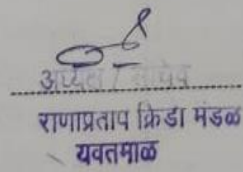 अध्यक्ष / सचिव
राणाप्रताप क्रिडा मंडळ
यवतमाळ